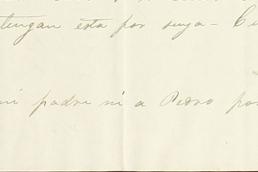 tengan esta por suya -
mi padre ni a Pedro por